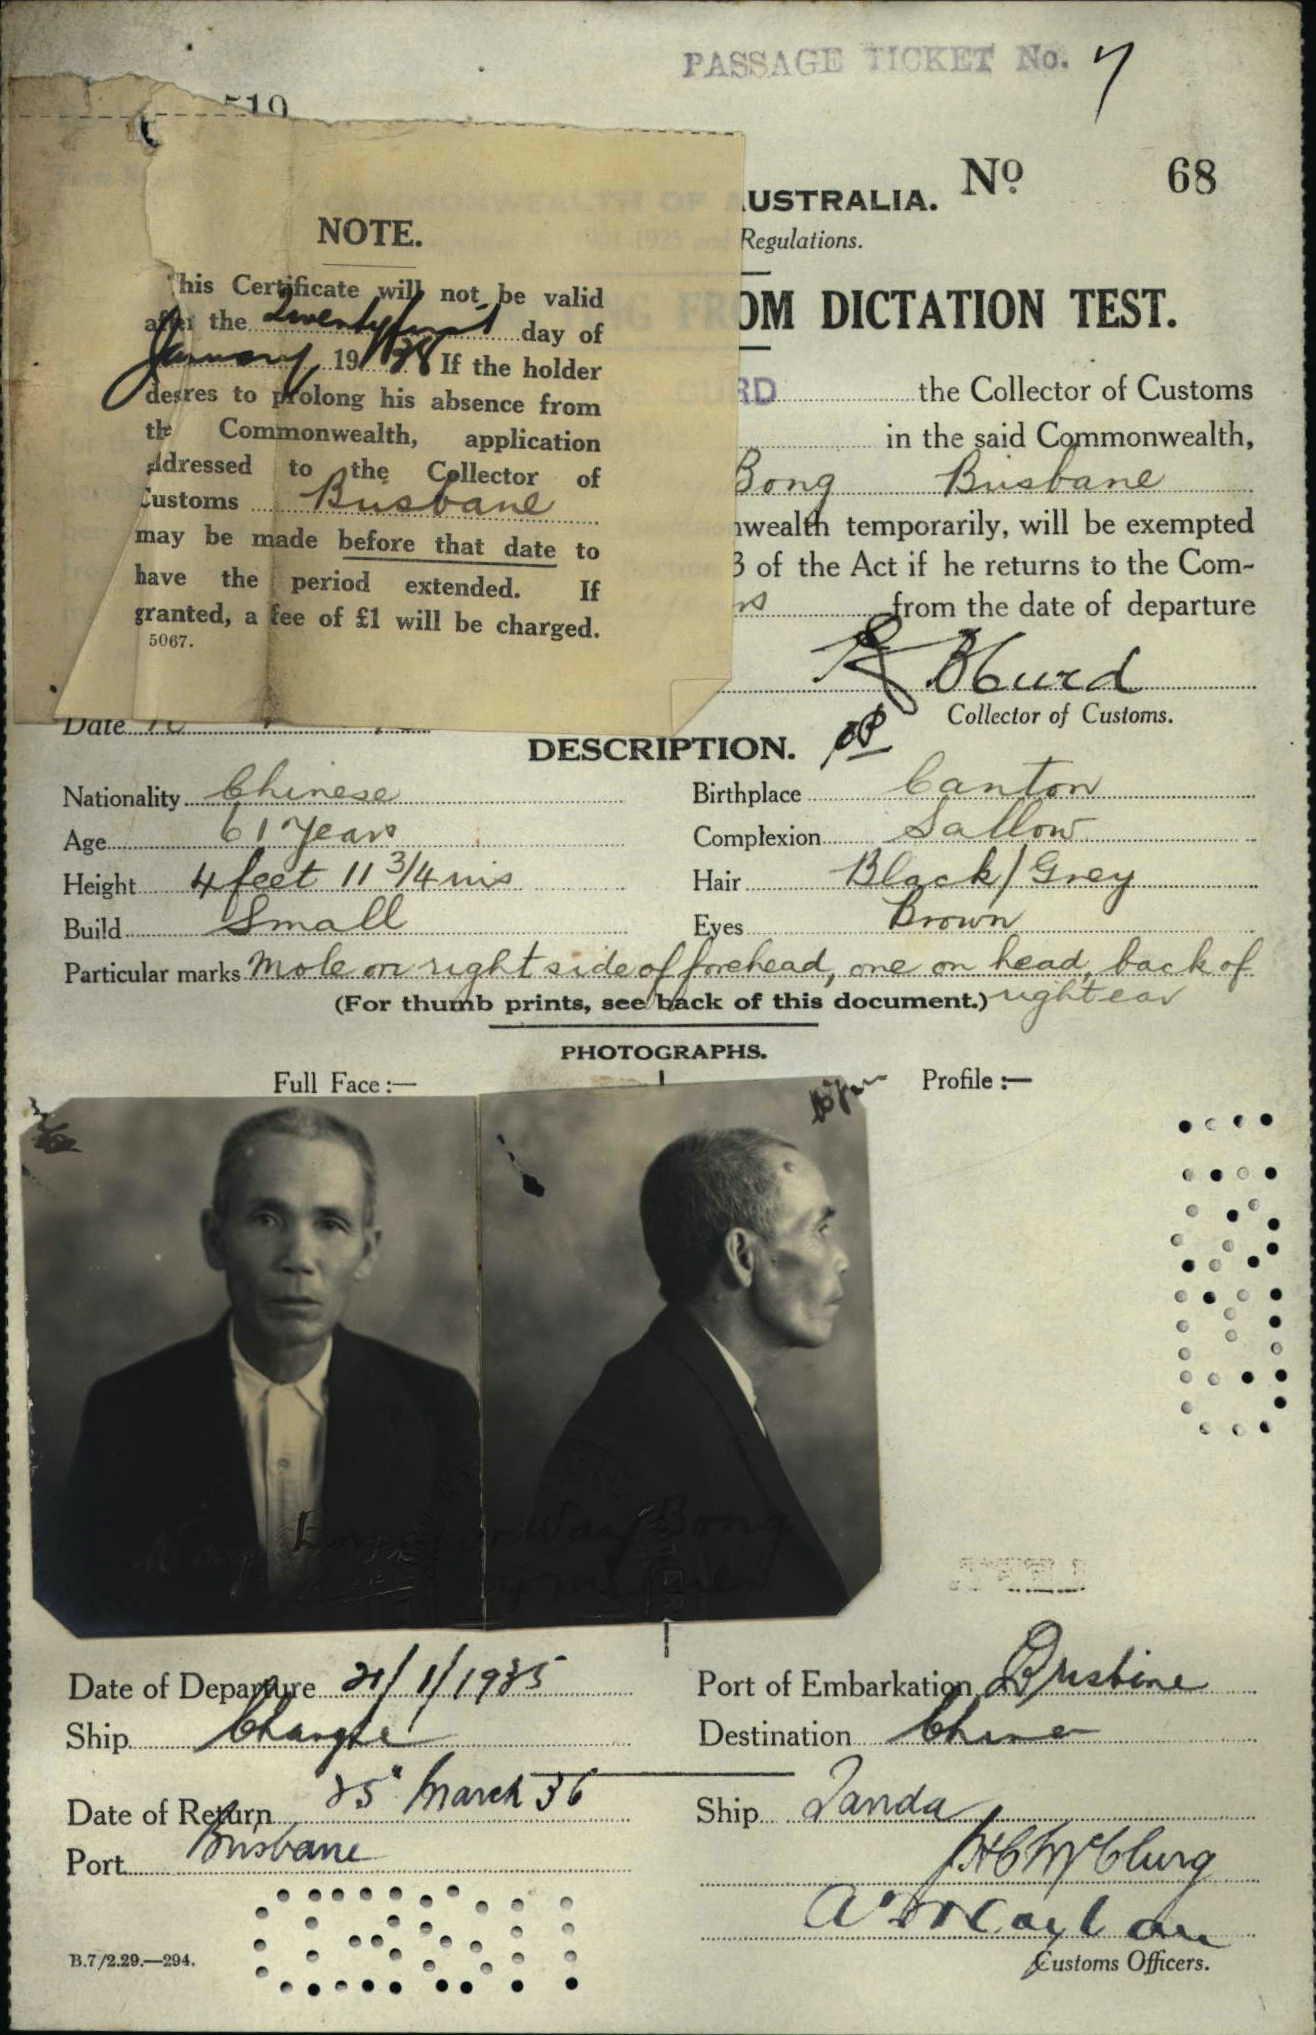 PASSAGE TICKET No. 7
510
AUSTRALIA. No. 68
Regulations.
NOTE.
This Certificate will not be valid
after the Twenty first day of
January 1938 If the holder
desires to prolong his absence from
the Commonwealth, application
addressed to the Collector of
Customs Brisbane
may be made before that date to
have the period extended. If
granted, a fee of £1 will be charged.
5067.
FROM DICTATION TEST.
URD the Collector of Customs
in the said Commonwealth,
Bong Brisbane
nwealth temporarily, will be exempted
3 of the Act if he returns to the Com-
rs from the date of departure
Hurd
Collector of Customs.
Date
DESCRIPTION.
Nationality Chinese Birthplace Canton
Age 61 Years Complexion Sallow
Height 4 feet 11 3/4 ins Hair Black/Grey
Build Small Eyes Brown
Particular marks Mole on right side of forehead, one on head, back of
(For thumb prints, see back of this document.) right ear
PHOTOGRAPHS.
Full Face:— Profile:—
Way Bong
Date of Departure 21/1/1935 Port of Embarkation Brisbane
Ship Changte Destination China
Date of Return 25" March 36 Ship Tanda
Port Brisbane
McClurg
Customs Officers.
B.7/2.29.—294.